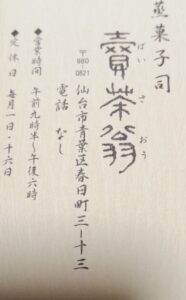 菓子司
賣茶翁
ばいさおう
〒980-0821
仙台市青葉区春日町三ー十三
電話 なし
●営業時間 午前九時半〜午後六時
●定休日 毎月一日・十六日